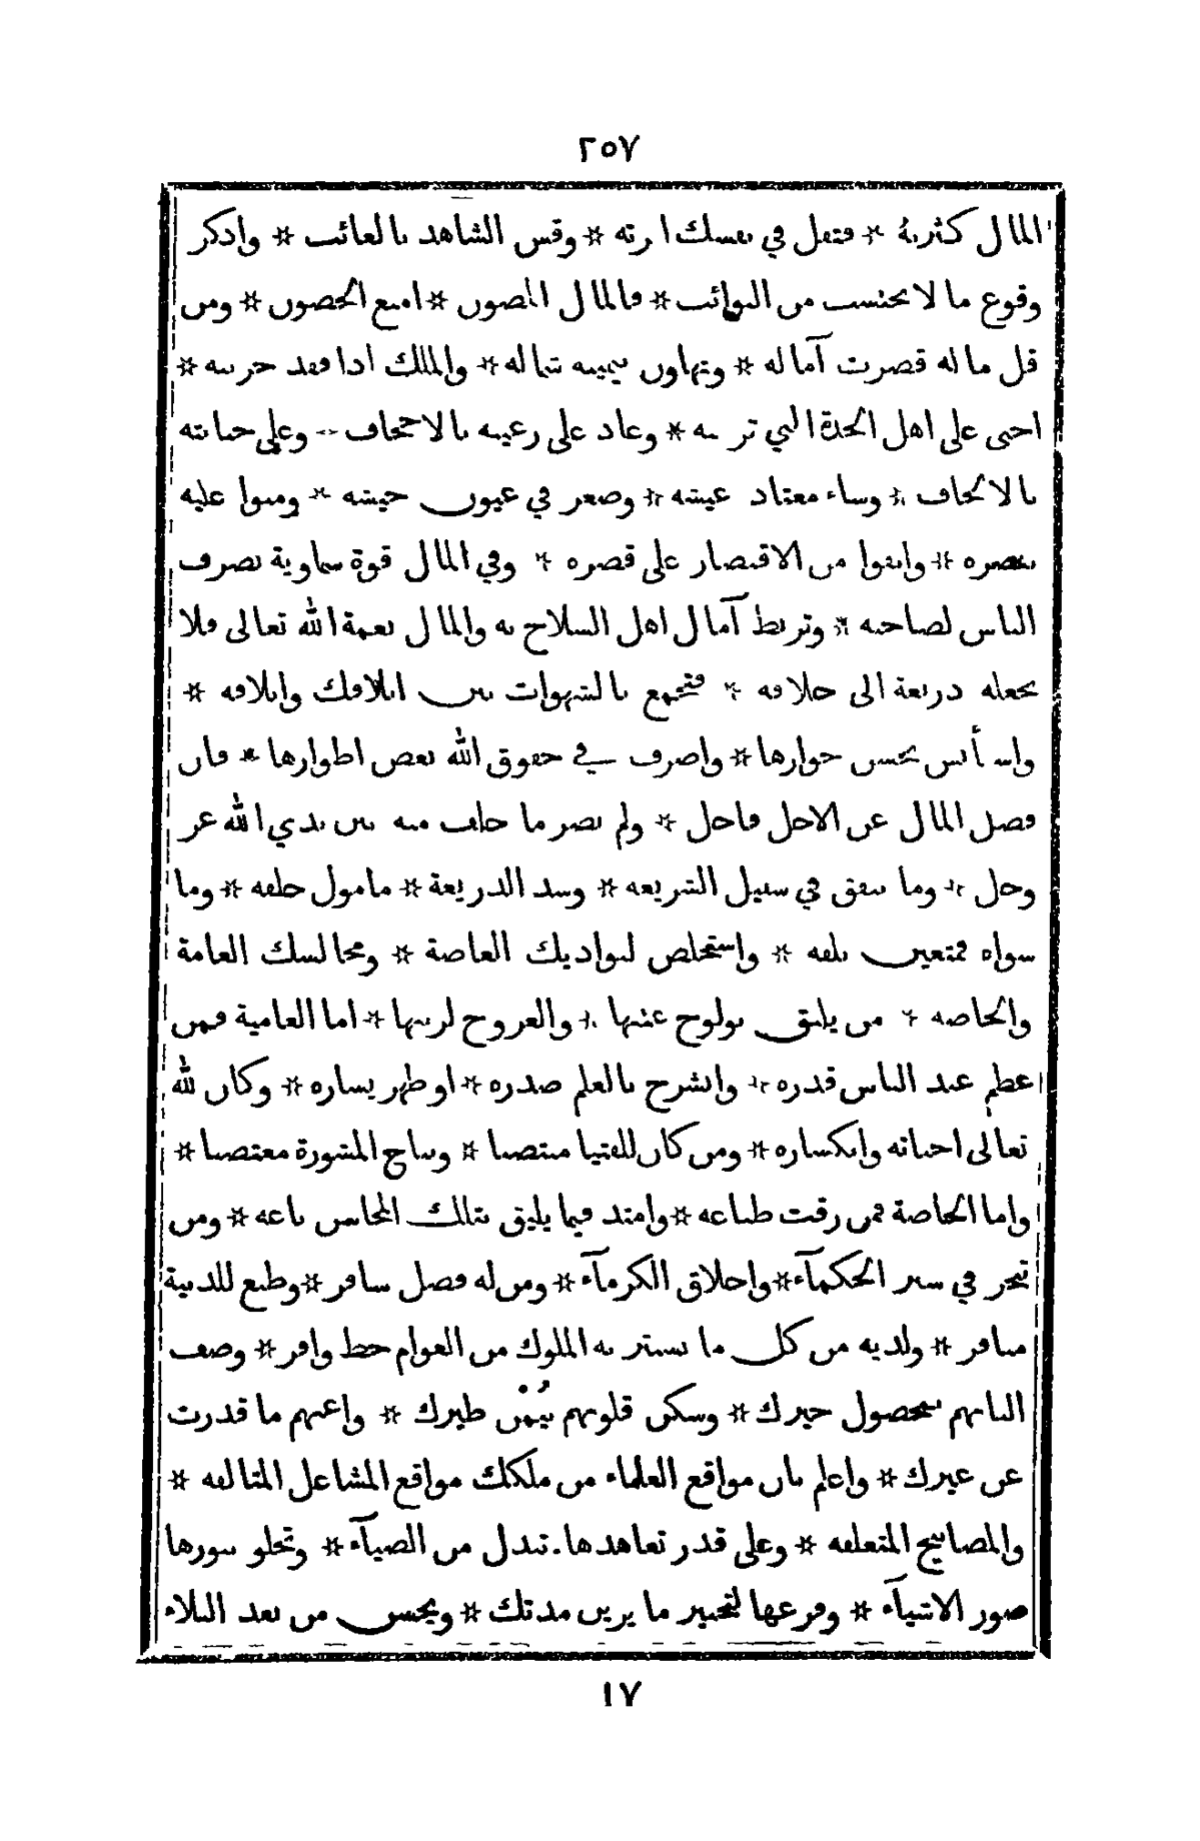 ٢٥٧
المال كثرته * فتقل في نفسك اثرته * وقس الشاهد بالغائب * واذكر
وقوع ما لا يحتسب من النوائب * فالمال المصون * امنع الحصون * ومن
قل ماله قصرت آماله * وتهاون بيمينه شماله * والملك اذا فقد خزينه *
اخنى على اهل الجدة التي تزينه * وعاد على رعيته بالاجحاف -- وعلى جبايته
بالالحاف * وساء معتاد عيشه * وصغر في عيون جيشه * ومنوا عليه
بنصره * وانفوا من الاقتصار على قصره * وفي المال قوة سماوية تصرف
الناس لصاحبه * وتربط آمال اهل السلاح به والمال نعمة الله تعالى فلا
تجعله ذريعة الى خلافه * فتجمع بالشهوات بين اتلافك واتلافه *
واستأنس بحسن جوارها * واصرف في حقوق الله بعض اطوارها * فان
فضل المال عن الاجل فاجل * ولم يضر ما خلف منه بين يدي الله عز
وجل * وما ينفق في سبيل الشريعه * وسد الذريعة * مامول خلفه * وما
سواه فمتعين تلفه * واستخلص لنواديك الغاصة * ومجالسك العامة
والخاصه * من يليق بولوج عتبها * والعروج لرتبها * اما العامية فمن
عظم عند الناس قدره * وانشرح بالعلم صدره * او ظهر يساره * وكان لله
تعالى اخباته وانكساره * ومن كان للفتيا منتصبا * وبتاج المشورة معتصبا *
واما الخاصة فمن رقت طباعه * وامتد فيما يليق بتلك المجالس باعه * ومن
تبحر في سير الحكمآء * واخلاق الكرمآء * ومن له فضل سافر * وطبع للدنية
منافر * ولديه من كل ما يستتر به الملوك من العوام حظ وافر * وصف
البابهم بمحصول خيرك * وسكن قلوبهم بيُمْن طيرك * واغنهم ما قدرت
عن غيرك * واعلم بان مواقع العلماء من ملكك مواقع المشاعل المتالقه *
والمصابيح المتعلقه * وعلى قدر تعاهدها . تبذل من الضيآء * وتجلو بنورها
صور الاشيآء * وفرغها لتحبير ما يزين مدتك * ويحسن من بعد البلاء
١٧